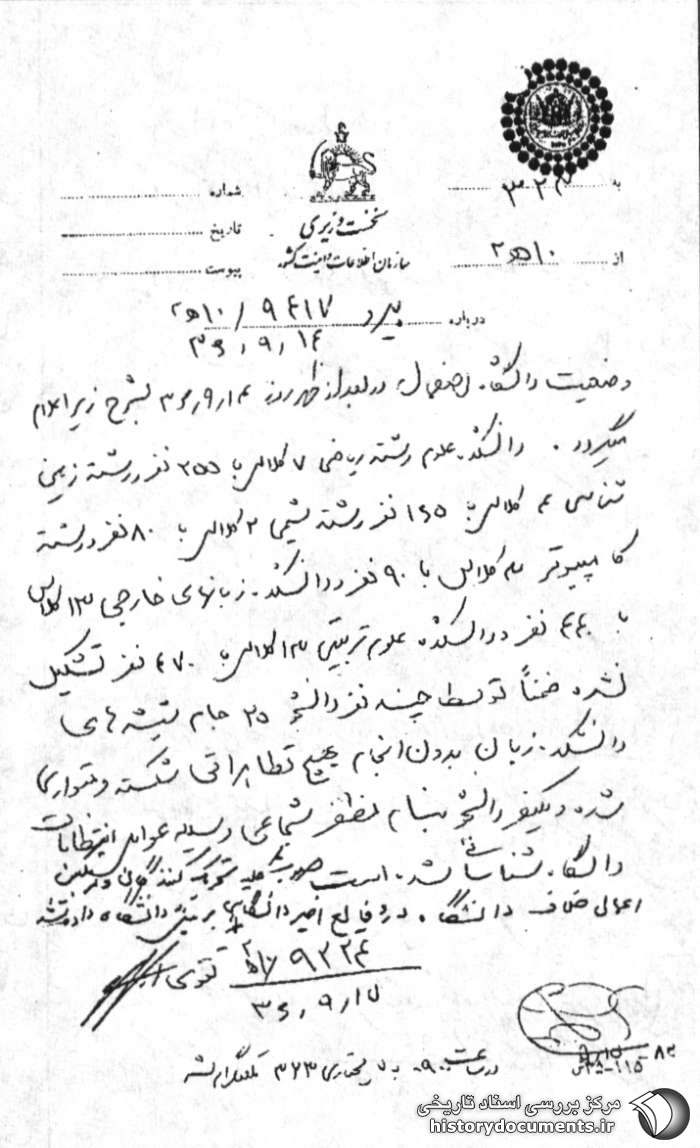 به ۳۲۳
از ۱۰ه۲
نخست وزیری
سازمان اطلاعات و امنیت کشور
شماره
تاریخ
پیوست
درباره پیرو ۹۴۱۷ / ۱۰ه۲
۳۶٫۹٫۱۴
وضعیت دانشگاه اصفهان در بعداز ظهر روز ۳۶٫۹٫۱۴ بشرح زیر اعلام
میگردد . دانشکده علوم رشته ریاضی ۷ کلاس با ۲۵۵ نفر و رشته زمین
شناسی ۴ کلاس با ۱۶۵ نفر رشته شیمی ۲ کلاس با ۸۰ نفر و رشته
کامپیوتر ۳ کلاس با ۹۰ نفر و دانشکده زبانهای خارجی ۱۳ کلاس
با ۴۴۰ نفر و دانشکده علوم تربیتی ۱۳ کلاس با ۴۷۰ نفر تشکیل
نشده ضمناً توسط چند نفر دانشجو ۲۵ جام شیشه های
دانشکده زبان بدون انجام هیچ تظاهراتی شکسته و متواری
شده و یکنفر دانشجو بنام مظفر شماعی وسیله عوامل انتظامات
دانشگاه شناسائی شده است صورت علیه تحریک کنندگان و مسببین
اعمالی خلاف دانشگاه در وقایع اخیر دانشگاه دانشگاه داده شد
تقوی
۹۲۲۴ / ۱۰ه۲
۳۶٫۹٫۱۷
در ساعت ۰۹۰۰ به بختیاری ۳۲۳ تلگرام شد
مرکز بررسی اسناد تاریخی
historydocuments.ir